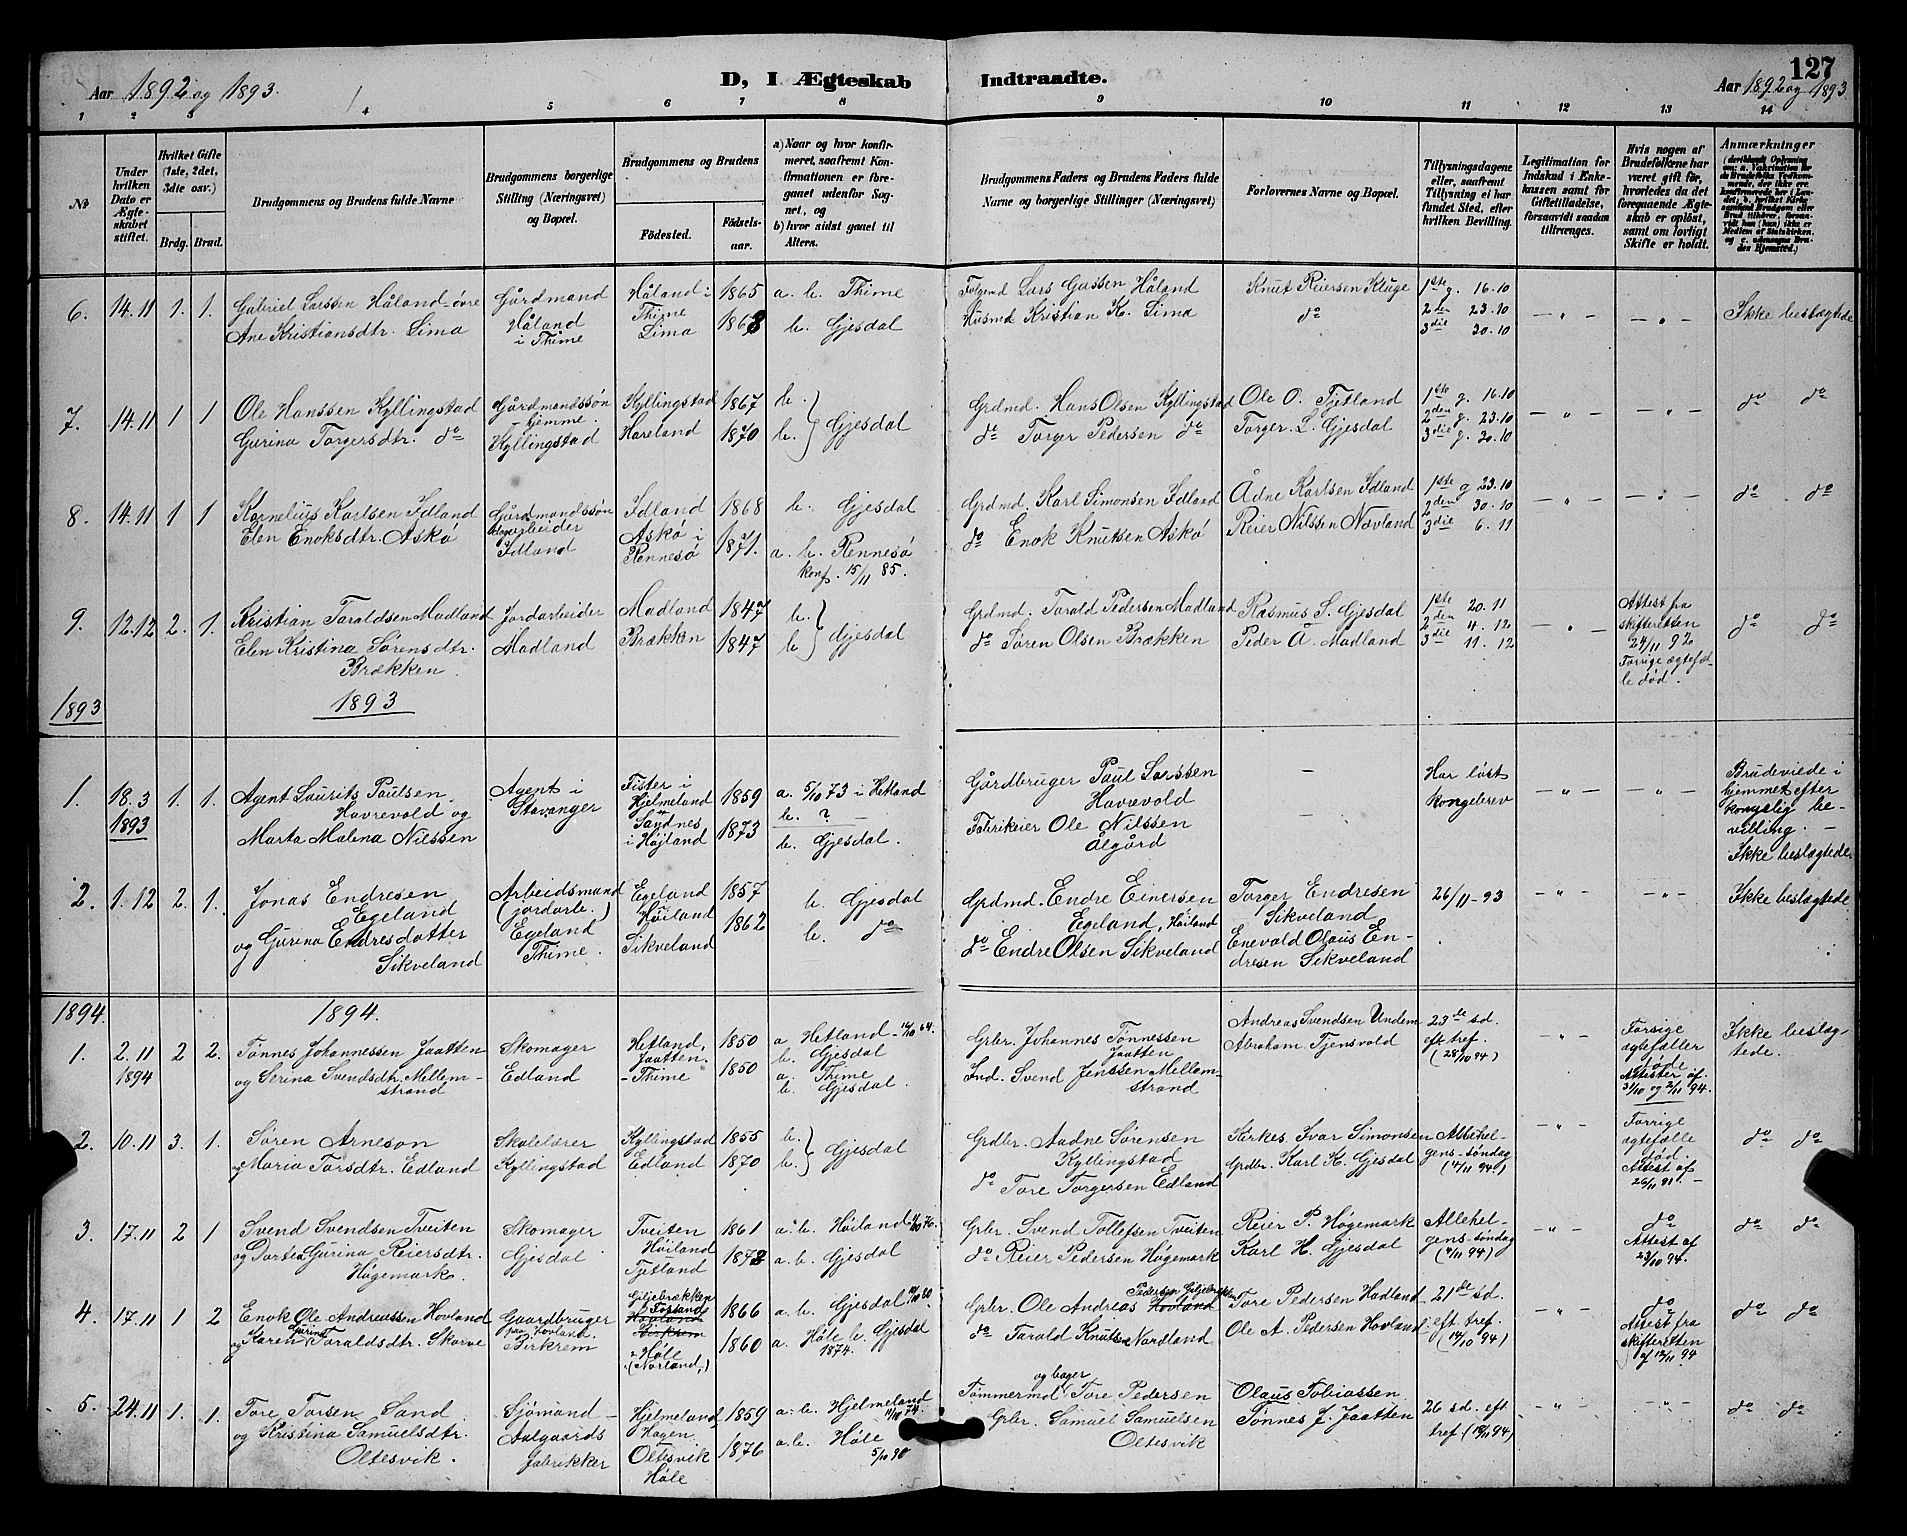 127
Aar 1892 og 1893.
D, I Ægteskab Indtraadte.
Aar 1892 og 1893
1 2 3 4 5 6 7 8 9 10 11 12 13 14
No
Under hvilken Dato er Ægteskabet stiftet.
Hvilket Gifte (1ste, 2det, 3die osv.)
Brdg. Brud.
Brudgommens og Brudens fulde Navne
Brudgommens borgerlige Stilling (Næringsvei) og Bopæl.
Brudgommens og Brudens
Fødested. Fødselsaar.
a) Naar og hvor konfirmeret, saafremt Konfirmationen er foregaaet udenfor Sognet, og
b) hvor sidst gaaet til Alters.
Brudgommens Faders og Brudens Faders fulde Navne og borgerlige Stillinger (Næringsvei)
Forlovernes Navne og Bopæl.
Tillysningsdagene eller, saafremt Tillysning ei har fundet Sted, efter hvilken Bevilling.
Legitimation for Indskud i Enkekassen samt for Giftetilladelse, forsaavidt saadan tiltrænges.
Hvis nogen af Brudefolkene har været gift før, hvorledes da det foregaaende Ægteskab er opløst, samt om lovligt Skifte er holdt.
Anmærkninger
6. 14.11 1. 1. Gabriel Larssen Håland øvre
Ane Kristiansdtr. Lima
Gårdmand
Håland
i Thime
Håland i
Thime
Lima
1865
1868
a. b. Thime
b. Gjesdal
Folgemd Lars Gassen Håland
Husmd Kristian K. Lima
Knut Reiersen Kluge
do
1ste g. 16.10
2de 23.10
3die 30.10
— " —
— " —
Ikke beslægtede
7. 14.11 1 1 Ole Hanssen Kyllingstad
Gurina Torgersdtr. do
Gårdmandssøn
hjemme.
Kyllingstad
Kyllingstad
Hareland
1867
1870
b.
b. } Gjesdal
Grdmd. Hans Olsen Kyllingstad
do Torger Pedersen do
Ole O. Fjetland
Torger L. Gjesdal
1ste g. 16.10
2den g. 23.10
3die g. 30.10
— " —
— " —
do do
8. 14.11 1 1 Kornelius Karlsen Idland
Elen Enoksdtr. Askø
Gårdmandssøn
Idland
Idland
Askø i
Rennesø
1868
1871.
b. Gjesdal
a. b. Rennesø
konf. 15/11 85.
Grdmd. Karl Simonsen Idland
do Enok Knutsen Askø
Ådne Karlsen Idland
Reier Nilssen Nævland
1ste g 23.10
2den 30.10
3die 6.11
— " —
— " —
do do
9. 12.12 2. 1. Kristian Taraldsen Madland
Elen Kristina Sørensdtr.
Brækken.
Jordarbeider
Madland
Madland
Brækken
1847
1847
b.
b } Gjesdal
Grdmd. Tarald Pedersen Madland
do Søren Olsen Brækken
Rasmus S. Gjesdal
Peder Å. Madland
1ste 20.11
2den 4.12
3die 11.12
— " —
Attest fra
skifteretten
24/11 92
Forrige ægtefæl-
le død.
do do
1893 1893
1. 18.3 1893 1. 1. Agent Laurits Paulsen
Havrevold og
Marta Malena Nilssen
Agent i
Stavanger
Fister i
Hjelmeland
Sandnes
i Højland
1859
1873
a. 5/10 73 i Hetland
b. ? —
b. Gjesdal.
Gårdbruger Paul Larssen
Havrevold
Fabrikeier Ole Nilssen
Ålgård
—
—
Har løst
kongebrev
— " —
— " —
Brudeviede i
hjemmet efter
kongelig be-
villing. —
Ikke beslægtede
2. 1.12 2. 1. Jonas Endresen
Egeland
og Gurina Endresdatter
Sikveland
Arbeidsmand
(jordarb.)
Egeland
Thime.
Egeland
Høiland
Sikveland
1857
1862
b. Gjesdal
b. do
Grdmd. Endre Einersen
Egeland, Høiland
do Endre Olsen Sikveland
Torger Endresen
Sikveland
Enevald Olaus En-
dresen Sikveland
26/11-93
— " —
— " —
Ikke beslægtede
1894. 1894.
1. 2.11 1894 2 2. Tønnes Johannessen Jaatten
og Serina Svendsdtr. Mellem-
strand
Skomager
Edland
Hetland,
Jaatten.
- Thime
1850
1850
a Hetland - 16/10 64.
b. Gjesdal
a. Thime
b. Gjesdal.
Grbr. Johannes Tønnessen
Jaatten
Ind. Svend Jenssen Mellem-
strand
Andreas Svendsen Undem
Abraham Tjensvold
23de sd.
eft tref.
(28/10 94)
— " —
Forrige
ægtefæller
døde
Attester af
31/10 og 2/11 94.
Ikke beslæg-
tede.
2. 10.11 3. 1. Søren Arneson
og Maria Torsdtr. Edland
Skolelærer
Kyllingstad
Kyllingstad
Edland
1855
1870
b.
b. } Gjesdal
Grdbr. Aadne Sørensen
Kyllingstad
do Tore Torgersen Edland
Kirkes. Ivar Simonsen
Grdbr. Karl H. Gjesdal
Allehel-
gens-søndag
(4/11 94)
— " —
Forrige
ægtefælle
død.
Attest af
26/11 91. —
do do
3. 17.11 2 1 Svend Svendsen Tveiten
og Dortea Gurina Reiersdtr.
Høgemark.
Skomager
Gjesdal
Tveiten
Høiland
Fjetland
1861
1873
a. b. Høiland 76.
a. b. Gjesdal
Grbr. Svend Tollefsen Tveiten
do Reier Pedersen Høgemark
Reier P. Høgemark
Karl H. Gjesdal
Allehel-
gens-søndag
(4/11 94)
— " —
do
Attest af
23/10 94.
do do
4. 17.11 1 2 Enok Ole Andreassen Hovland
og Karen Gurine Taraldsdtr. Skorve
Gaardbruger
paa Hovland.
Birkrem
Giljebrækken
Forsand
Hovland
Birkrem
Høle
(Norland,)
1866
1860
a. b. Gjesdal 80.
a. Høle b. Gjesdal
1874.
Grbr. Ole Andreas Pedersen Giljebrækken Hovland
do Tarald Knutsen Nordland
Tore Pedersen Hadland
Ole A. Pedersen Hovland
21de sd.
eft tref.
(14/10 94)
— " —
do
Attest fra
skifteretten
af 12/11 94
do do
5. 24.11 1. 1. Tore Torsen Sand
og Kristina Samuelsdtr.
Oltesvik.
Sjømand —
Aalgaards
fabrikker
Hjelmeland
Hagen
Oltesvik
Høle
1859
1876
a. b. Hjelmeland
74.
a. b. Høle
5/10 90
Tømmermd og bager Tore Pedersen
Grbr. Samuel Samuelsen
Oltesvik
Olaus Tobiassen
Tønnes J. Jaatten
26 sd. eft
tref (18/11 94)
— " —
— " —
do do